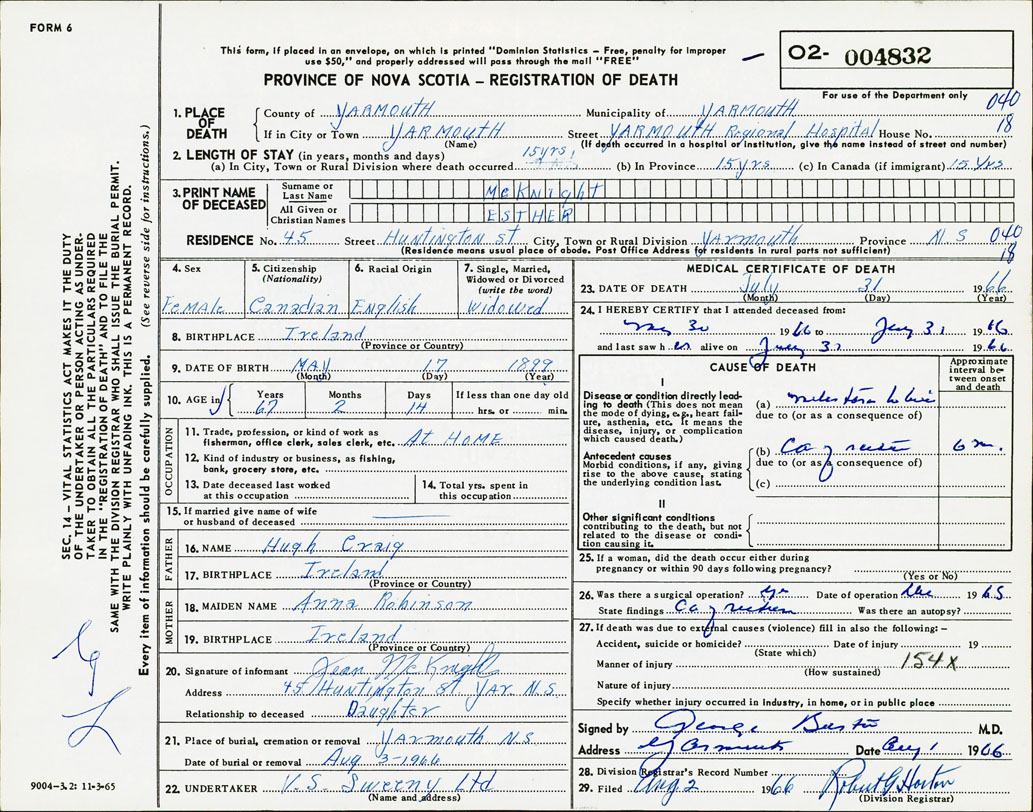 FORM 6
This form, if placed in an envelope, on which is printed "Dominion Statistics – Free, penalty for improper
use $50," and properly addressed will pass through the mail "FREE"
PROVINCE OF NOVA SCOTIA – REGISTRATION OF DEATH
02- 004832
For use of the Department only
040
18
1. PLACE OF DEATH County of YARMOUTH Municipality of YARMOUTH
If in City or Town YARMOUTH Street YARMOUTH Regional Hospital House No.
(Name) (If death occurred in a hospital or institution, give the name instead of street and number)
2. LENGTH OF STAY (in years, months and days)
(a) In City, Town or Rural Division where death occurred 15 yrs. (b) In Province 15 yrs (c) In Canada (if immigrant) 15 Yrs
3. PRINT NAME OF DECEASED Surname or Last Name McKnight
All Given or Christian Names ESTHER
RESIDENCE No. 45 Street Huntington St City, Town or Rural Division Yarmouth Province N.S 040
(Residence means usual place of abode. Post Office Address for residents in rural parts not sufficient) 18
4. Sex 5. Citizenship (Nationality) 6. Racial Origin 7. Single, Married, Widowed or Divorced (write the word)
Female Canadian English Widowed
8. BIRTHPLACE Ireland
(Province or Country)
9. DATE OF BIRTH MAY 17 1899
(Month) (Day) (Year)
10. AGE in Years Months Days If less than one day old
67 2 14 hrs. or min.
OCCUPATION
11. Trade, profession, or kind of work as
fisherman, office clerk, sales clerk, etc. At HOME
12. Kind of industry or business, as fishing,
bank, grocery store, etc.
13. Date deceased last worked
at this occupation
14. Total yrs. spent in
this occupation
15. If married give name of wife
or husband of deceased
FATHER
16. NAME Hugh Craig
17. BIRTHPLACE Ireland
(Province or Country)
MOTHER
18. MAIDEN NAME Anna Robinson
19. BIRTHPLACE Ireland
(Province or Country)
20. Signature of informant Jean McKnight
Address 45 Huntington St Yar N.S
Relationship to deceased Daughter
21. Place of burial, cremation or removal Yarmouth N.S
Date of burial or removal Aug 3-1966
22. UNDERTAKER V.S. Sweeny Ltd
(Name and address)
MEDICAL CERTIFICATE OF DEATH
23. DATE OF DEATH July 31 1966
(Month) (Day) (Year)
24. I HEREBY CERTIFY that I attended deceased from:
30 1966 to July 31 1966
and last saw her alive on July 31 1966
CAUSE OF DEATH
Approximate interval between onset and death
I
Disease or condition directly lead-
ing to death (This does not mean
the mode of dying, e.g., heart fail-
ure, asthenia, etc. It means the
disease, injury, or complication
which caused death.)
(a)
due to (or as a consequence of)
Antecedent causes
Morbid conditions, if any, giving
rise to the above cause, stating
the underlying condition last.
(b) Ca of rectum 6 m.
due to (or as a consequence of)
(c)
II
Other significant conditions
contributing to the death, but not
related to the disease or condi-
tion causing it.
25. If a woman, did the death occur either during
pregnancy or within 90 days following pregnancy?
(Yes or No)
26. Was there a surgical operation? yes Date of operation Dec 1965
State findings Ca of rectum Was there an autopsy?
27. If death was due to external causes (violence) fill in also the following: –
Accident, suicide or homicide? Date of injury 19
(State which)
Manner of injury 154X
(How sustained)
Nature of injury
Specify whether injury occurred in industry, in home, or in public place
Signed by George Burton M.D.
Address Yarmouth Date Aug 1 1966
28. Division Registrar's Record Number
29. Filed Aug 2 1966 Robert G Horton
(Division Registrar)
SEC. 14 – VITAL STATISTICS ACT MAKES IT THE DUTY
OF THE UNDERTAKER OR PERSON ACTING AS UNDER-
TAKER TO OBTAIN ALL THE PARTICULARS REQUIRED
IN THE "REGISTRATION OF DEATH" AND TO FILE THE
SAME WITH THE DIVISION REGISTRAR WHO SHALL ISSUE THE BURIAL PERMIT.
WRITE PLAINLY WITH UNFADING INK. THIS IS A PERMANENT RECORD.
Every item of information should be carefully supplied. (See reverse side for instructions.)
9004-3.2: 11-3-65